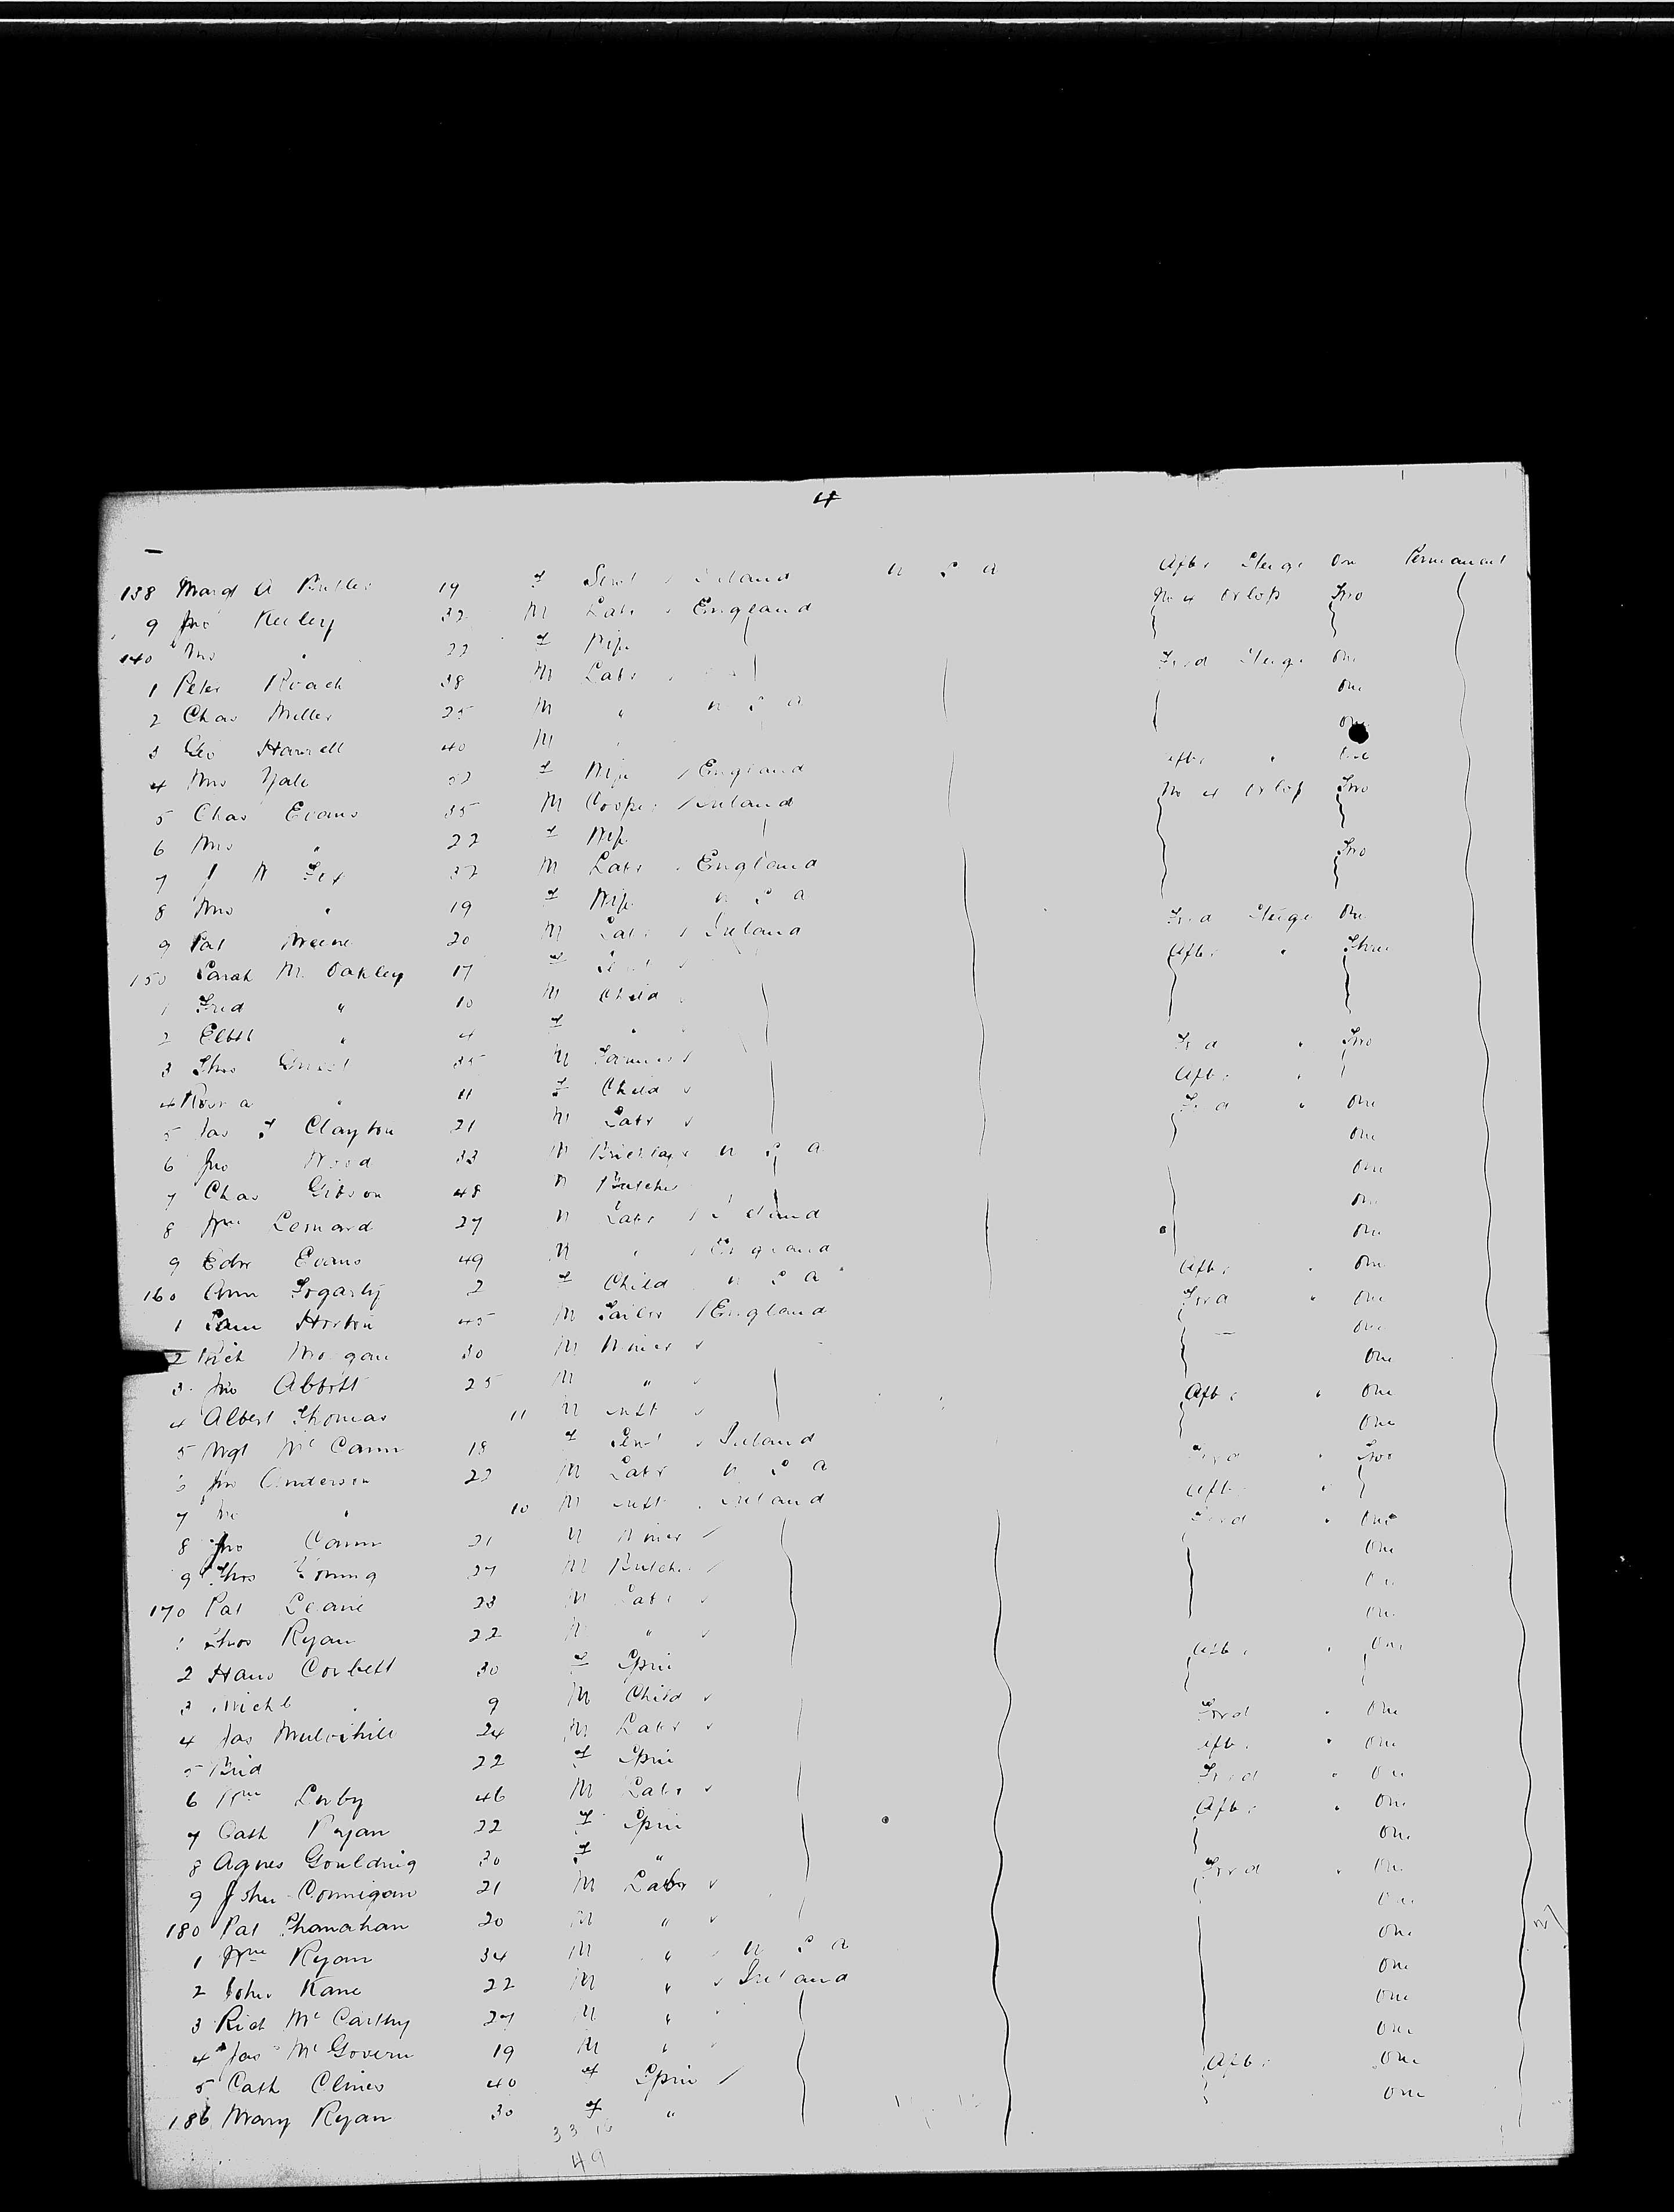 4
138 Margt A Butler 19 F Servt Ireland U S A Aftr Sterge One Permanent
9 Jno Keeley 32 M Labr England No 4 Orlop Two
140 Mrs " 22 F Wife
1 Peter Roach 38 M Labr Frd Sterge One
2 Chas Miller 25 M " U S A One
3 Geo Harrell 40 M One
4 Mrs Yale F Wife England Aftr " One
5 Chas Evans 35 M Cooper Ireland No 4 Orlop Two
6 Mrs " 22 F Wife
7 J W 37 M Labr England Two
8 Mrs " 19 F Wife U S A
9 Pat 20 M Labr Ireland Frd Sterge One
150 Sarah M. Oakley 17 F Servt Aftr " Three
1 Fred " 10 M Child
2 Elbth " 4 F "
3 Thos Guest 35 M Farmer Frd " Two
4 " 11 F Child Aftr "
5 Jas F Clayton 21 M Labr Frd " One
6 Jno Wood 33 M Bricklayr U S A One
7 Chas Gibson 48 M Butcher One
8 Wm Leonard 27 M Labr Ireland One
9 Edw Evans 49 M " England One
160 Ann Fogarty 2 F Child U S A Aftr " One
1 Sam Horton 45 M Tailor England Frd " One
2 Rich Morgan 30 M Miner One
3 Jno Abbott 25 M " One
4 Albert Thomas 11 M inft Aftr " One
5 Mgt McCann 18 F Servt Ireland One
6 Jno Anderson 23 M Labr U S A Frd " Two
7 " 10 M inft Ireland Aftr "
8 Jno Cann 21 M Miner Frd " One
9 Thos Young 27 M Butcher One
170 Pat Leane 23 M Labr One
1 Thos Ryan 22 M " One
2 Hans Corbett 30 F Spin Aftr " One
3 Michl " 9 M Child
4 Jas Mulvihill 24 M Labr Frd " One
5 Brid 22 F Spin Aftr " One
6 Wm Luby 46 M Labr Frd " One
7 Cath Ryan 22 F Spin Aftr " One
8 Agnes Goulding 30 F " One
9 John Connigan 21 M Labor Frd " One
180 Pat Shanahan 20 M " One
1 Wm Ryan 34 M " U S A One
2 John Kane 22 M " Ireland One
3 Rich McCarthy 27 M " One
4 Jas McGovern 19 M " One
5 Cath Clines 40 F Spin Aftr One
186 Mary Ryan 30 F " One
33 16
49